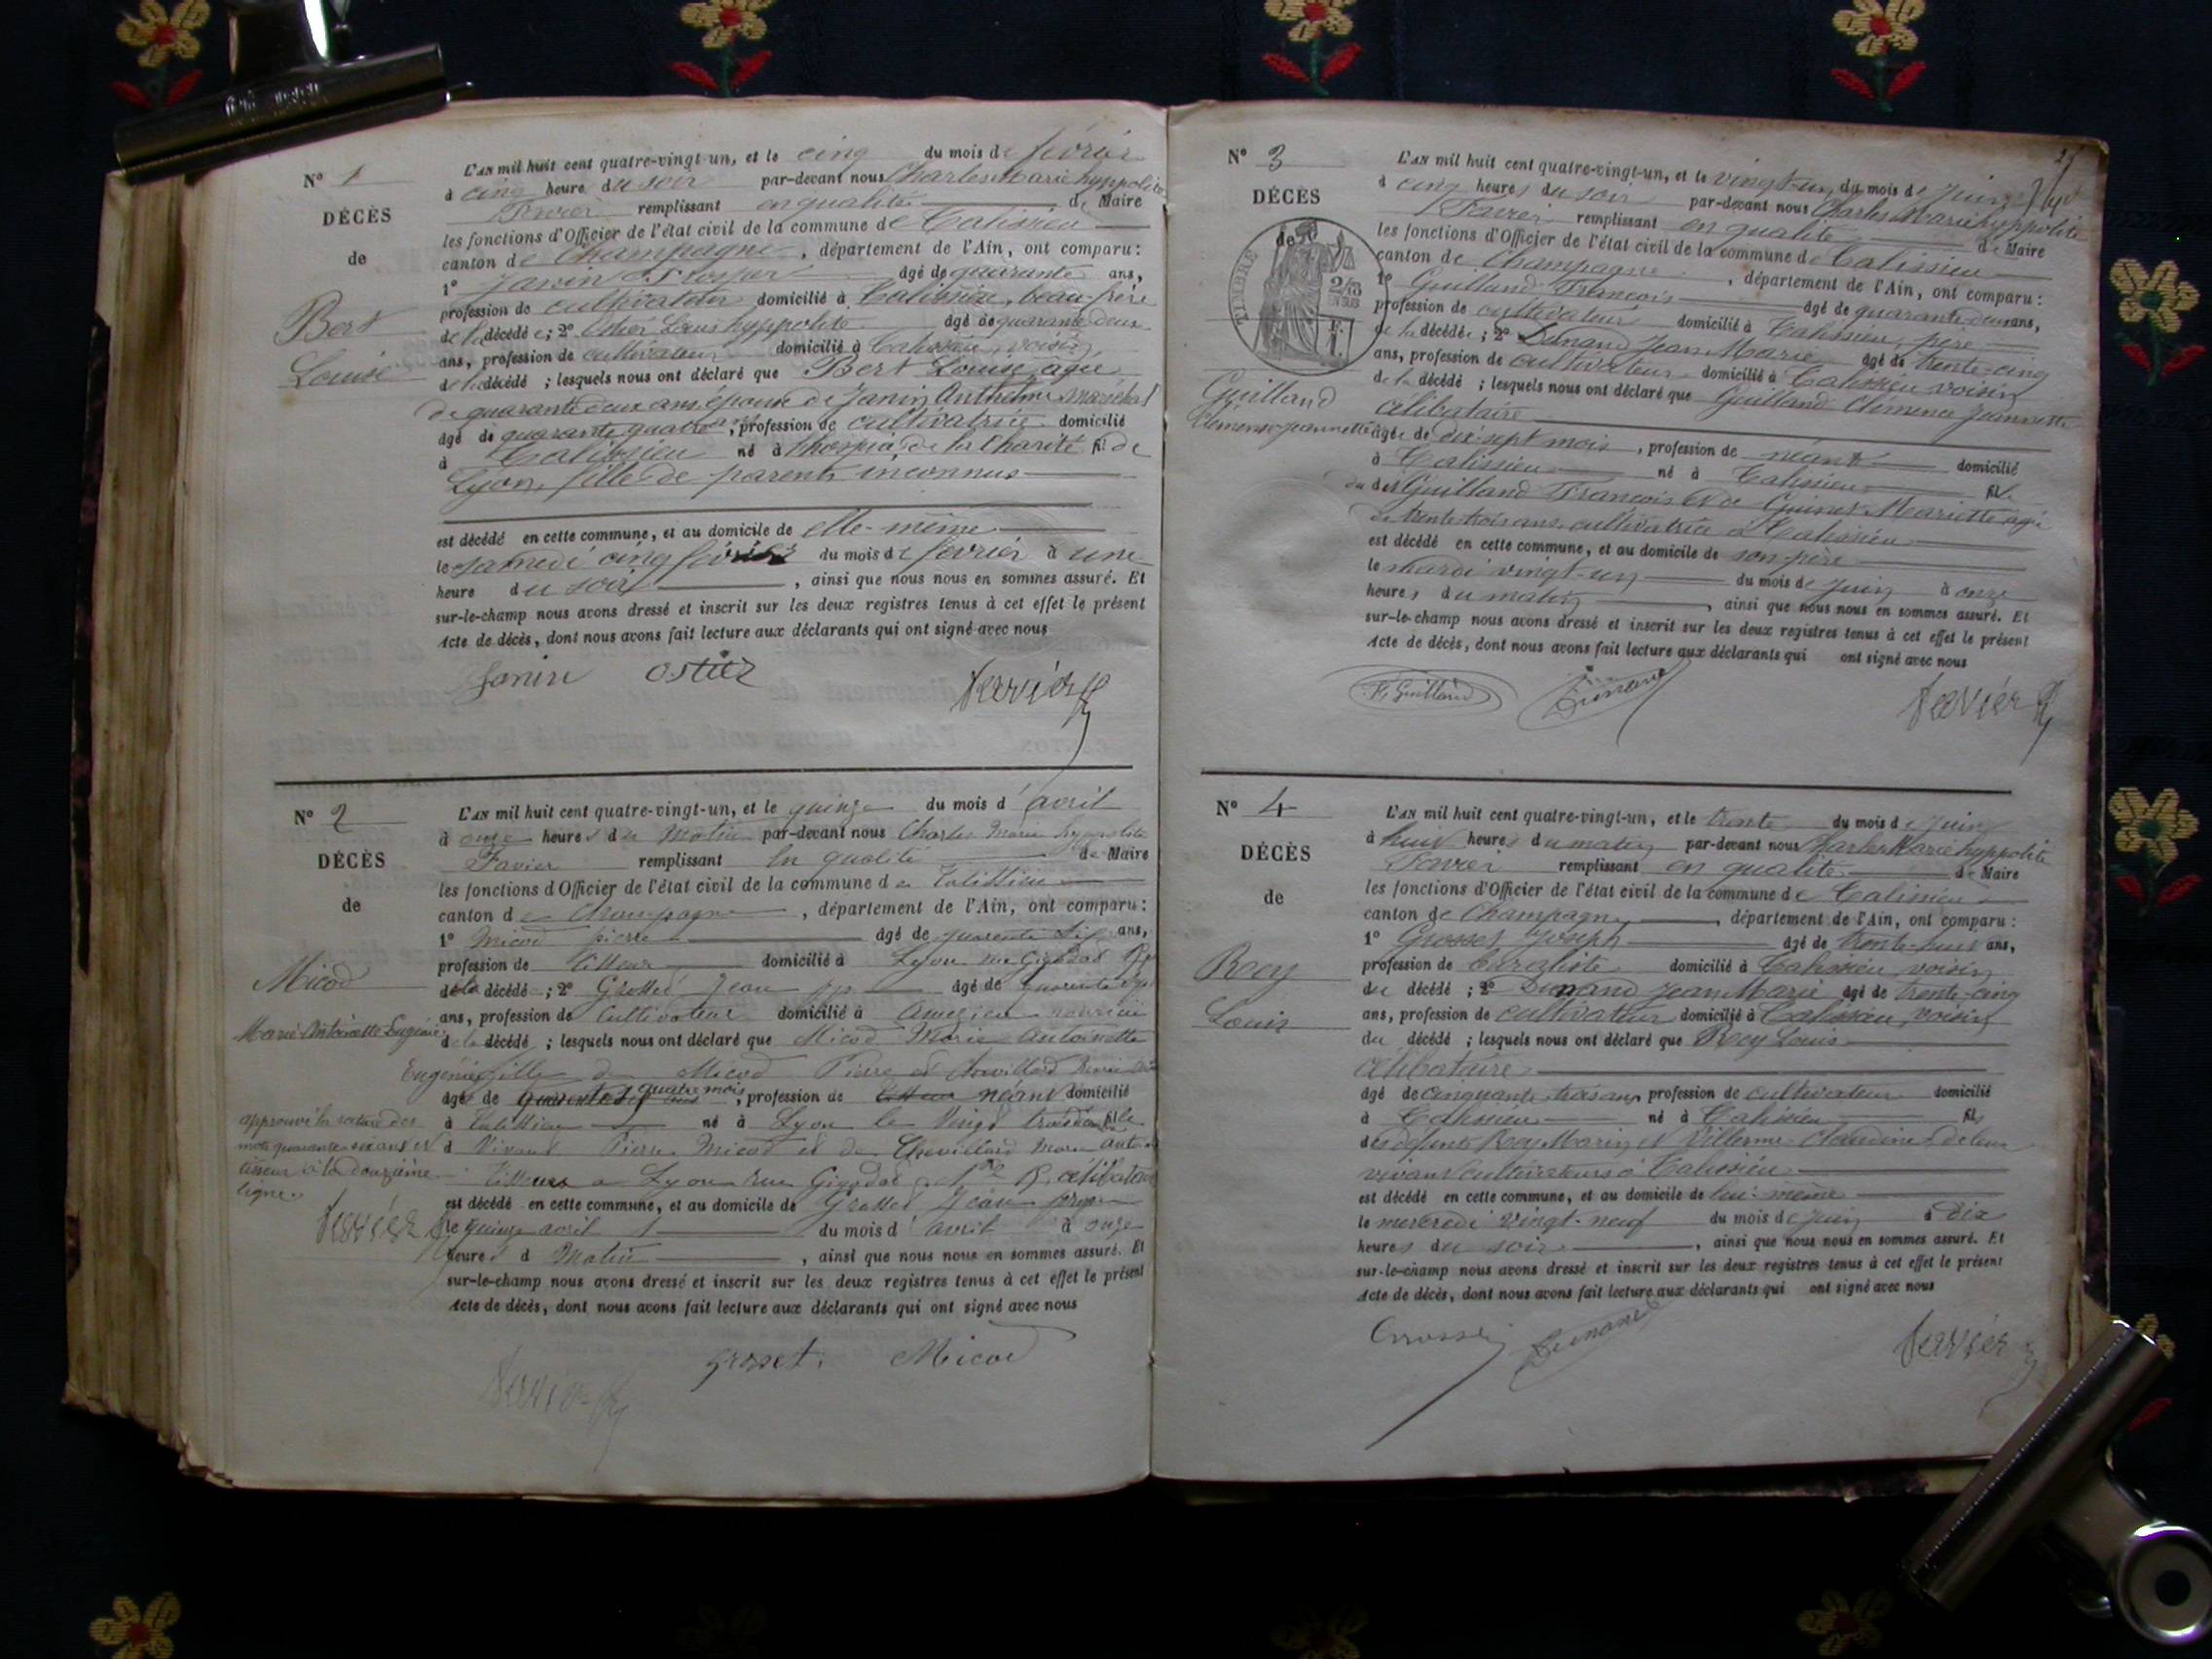 N° 1
DÉCÈS
de
Bert
Louise
L'AN mil huit cent quatre-vingt-un, et le cinq du mois de février
à cinq heure du soir par-devant nous Charles Marie hyppolite
remplissant en qualité de Maire
les fonctions d'Officier de l'état civil de la commune de Talissieu
canton de Champagne, département de l'Ain, ont comparu:
1° Janin âgé de quarante ans,
profession de cultivateur domicilié à Talissieu, beau-frère
de la décédée; 2° Louis hyppolite âgé de quarante deux
ans, profession de cultivateur domicilié à Talissieu, voisin
de la décédé ; lesquels nous ont déclaré que Bert Louise, agée
de quarante deux ans, épouse de Janin Anthelme maréchal
âgé de quarante quatre ans, profession de cultivatrice domicilié
à Talissieu né à l'hospice de la Charité fil de
Lyon, fille de parents inconnus
est décédé en cette commune, et au domicile de elle-même
le samedi cinq février du mois de février à une
heure du soir, ainsi que nous nous en sommes assuré. Et
sur-le-champ nous avons dressé et inscrit sur les deux registres tenus à cet effet le présent
Acte de décès, dont nous avons fait lecture aux déclarants qui ont signé avec nous
Janin Ostier
N° 2
DÉCÈS
de
Micod
Marie Antoinette Eugénie
L'AN mil huit cent quatre-vingt-un, et le quinze du mois d'avril
à onze heures du Matin par-devant nous Charles Marie hyppolite
Favier remplissant en qualité de Maire
les fonctions d'Officier de l'état civil de la commune de Talissieu
canton de Champagne, département de l'Ain, ont comparu:
1° Micod pierre âgé de quarante six ans,
profession de tisseur domicilié à Lyon rue Gigodot
de la décédé; 2° Grosset Jean âgé de quarante
ans, profession de Cultivateur domicilié à
de la décédé ; lesquels nous ont déclaré que Micod Marie Antoinette
Eugénie fille de Micod Pierre et Chevillard
âgé de quarante six ans quatre mois, profession de tisseur néant domicilié
à Talissieu né à Lyon le Vingt
d Pierre Micod et de Chevillard
tisseurs a Lyon rue Gigodot célibataire
est décédé en cette commune, et au domicile de Grosset Jean
le quinze avril du mois d'avril à onze
heures d Matin, ainsi que nous nous en sommes assuré. Et
sur-le-champ nous avons dressé et inscrit sur les deux registres tenus à cet effet le présent
Acte de décès, dont nous avons fait lecture aux déclarants qui ont signé avec nous
approuvé la rature des
mots quarante six ans et
tisseur à la douzième
ligne.
grosset Micod
N° 3
DÉCÈS
de
TIMBRE
Guilland
Clémence Jeannette
L'AN mil huit cent quatre-vingt-un, et le vingt-un du mois de juin
à cinq heures du soir par-devant nous Charles Marie hyppolite
remplissant en qualité de Maire
les fonctions d'Officier de l'état civil de la commune de Talissieu
canton de Champagne, département de l'Ain, ont comparu:
1° Guilland François âgé de quarante deux ans,
profession de cultivateur domicilié à Talissieu, père
de la décédée; 2° Dunand Jean Marie âgé de trente-cinq
ans, profession de cultivateur domicilié à Talissieu voisin
de la décédé ; lesquels nous ont déclaré que Guilland Clémence Jeannette
célibataire
âgée de dix-sept mois, profession de néant domicilié
à Talissieu né à Talissieu fil
Guilland François et de Guinet Mariette agée
de trente-trois ans, cultivatrice à Talissieu
est décédé en cette commune, et au domicile de son père
le mardi vingt-un du mois de juin à onze
heures du matin, ainsi que nous nous en sommes assuré. Et
sur-le-champ nous avons dressé et inscrit sur les deux registres tenus à cet effet le présent
Acte de décès, dont nous avons fait lecture aux déclarants qui ont signé avec nous
F. Guilland Dunand
N° 4
DÉCÈS
de
Rey
Louis
L'AN mil huit cent quatre-vingt-un, et le trente du mois de juin
à huit heures du matin par-devant nous Charles Marie hyppolite
remplissant en qualité de Maire
les fonctions d'Officier de l'état civil de la commune de Talissieu
canton de Champagne, département de l'Ain, ont comparu:
1° Grosset Joseph âgé de trente-huit ans,
profession de buraliste domicilié à Talissieu, voisin
du décédé ; 2° Dunand Jean Marie âgé de trente-cinq
ans, profession de cultivateur domicilié à Talissieu, voisin
du décédé ; lesquels nous ont déclaré que Rey Louis
célibataire
âgé de cinquante trois ans profession de cultivateur domicilié
à Talissieu né à Talissieu fils
des défunts Rey Marin et Villerme Claudine, de leur
vivant cultivateurs à Talissieu
est décédé en cette commune, et au domicile de lui-même
le mercredi vingt-neuf du mois de juin à dix
heures du soir, ainsi que nous nous en sommes assuré. Et
sur-le-champ nous avons dressé et inscrit sur les deux registres tenus à cet effet le présent
Acte de décès, dont nous avons fait lecture aux déclarants qui ont signé avec nous
Grosset Dunand